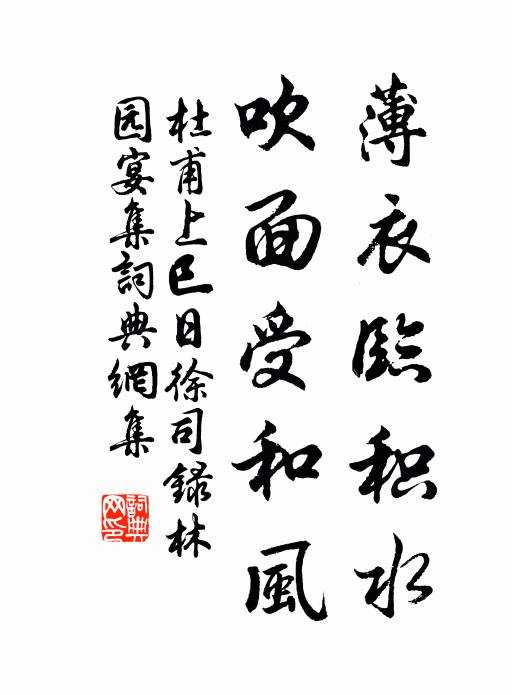 薄衣臨积水
吹面受和風
杜甫上巳日徐司録林
园宴集詞典網集
詞典网印